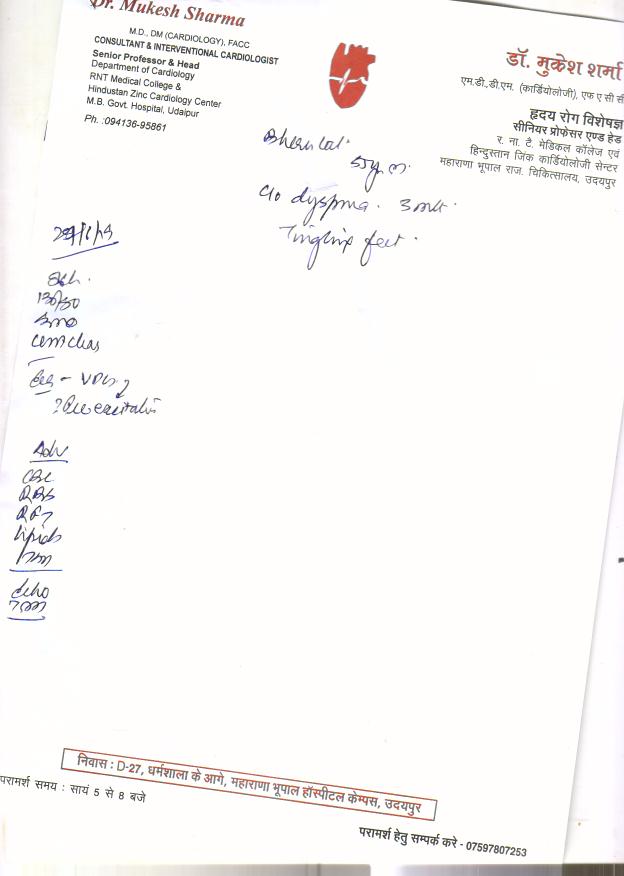 Dr. Mukesh Sharma
M.D., DM (CARDIOLOGY), FACC
CONSULTANT & INTERVENTIONAL CARDIOLOGIST
Senior Professor & Head
Department of Cardiology
RNT Medical College &
Hindustan Zinc Cardiology Center
M.B. Govt. Hospital, Udaipur
Ph. :094136-95861
डॉ. मुकेश शर्मा
एम.डी.,डी.एम. (कार्डियोलॉजी), एफ ए सी सी
हृदय रोग विशेषज्ञ
सीनियर प्रोफेसर एण्ड हेड
र. ना. टै. मेडिकल कॉलेज एवं
हिन्दुस्तान जिंक कार्डियोलॉजी सेन्टर
महाराणा भूपाल राज. चिकित्सालय, उदयपुर
c/o dyspnea. 3 mth.
Tingling feet.
130/80
VPCs
? Pre excitation
Adv
CBC
RBS
RFT
lipids
Echo
TMT
निवास : D-27, धर्मशाला के आगे, महाराणा भूपाल हॉस्पीटल केम्पस, उदयपुर
परामर्श समय : सायं 5 से 8 बजे
परामर्श हेतु सम्पर्क करे - 07597807253